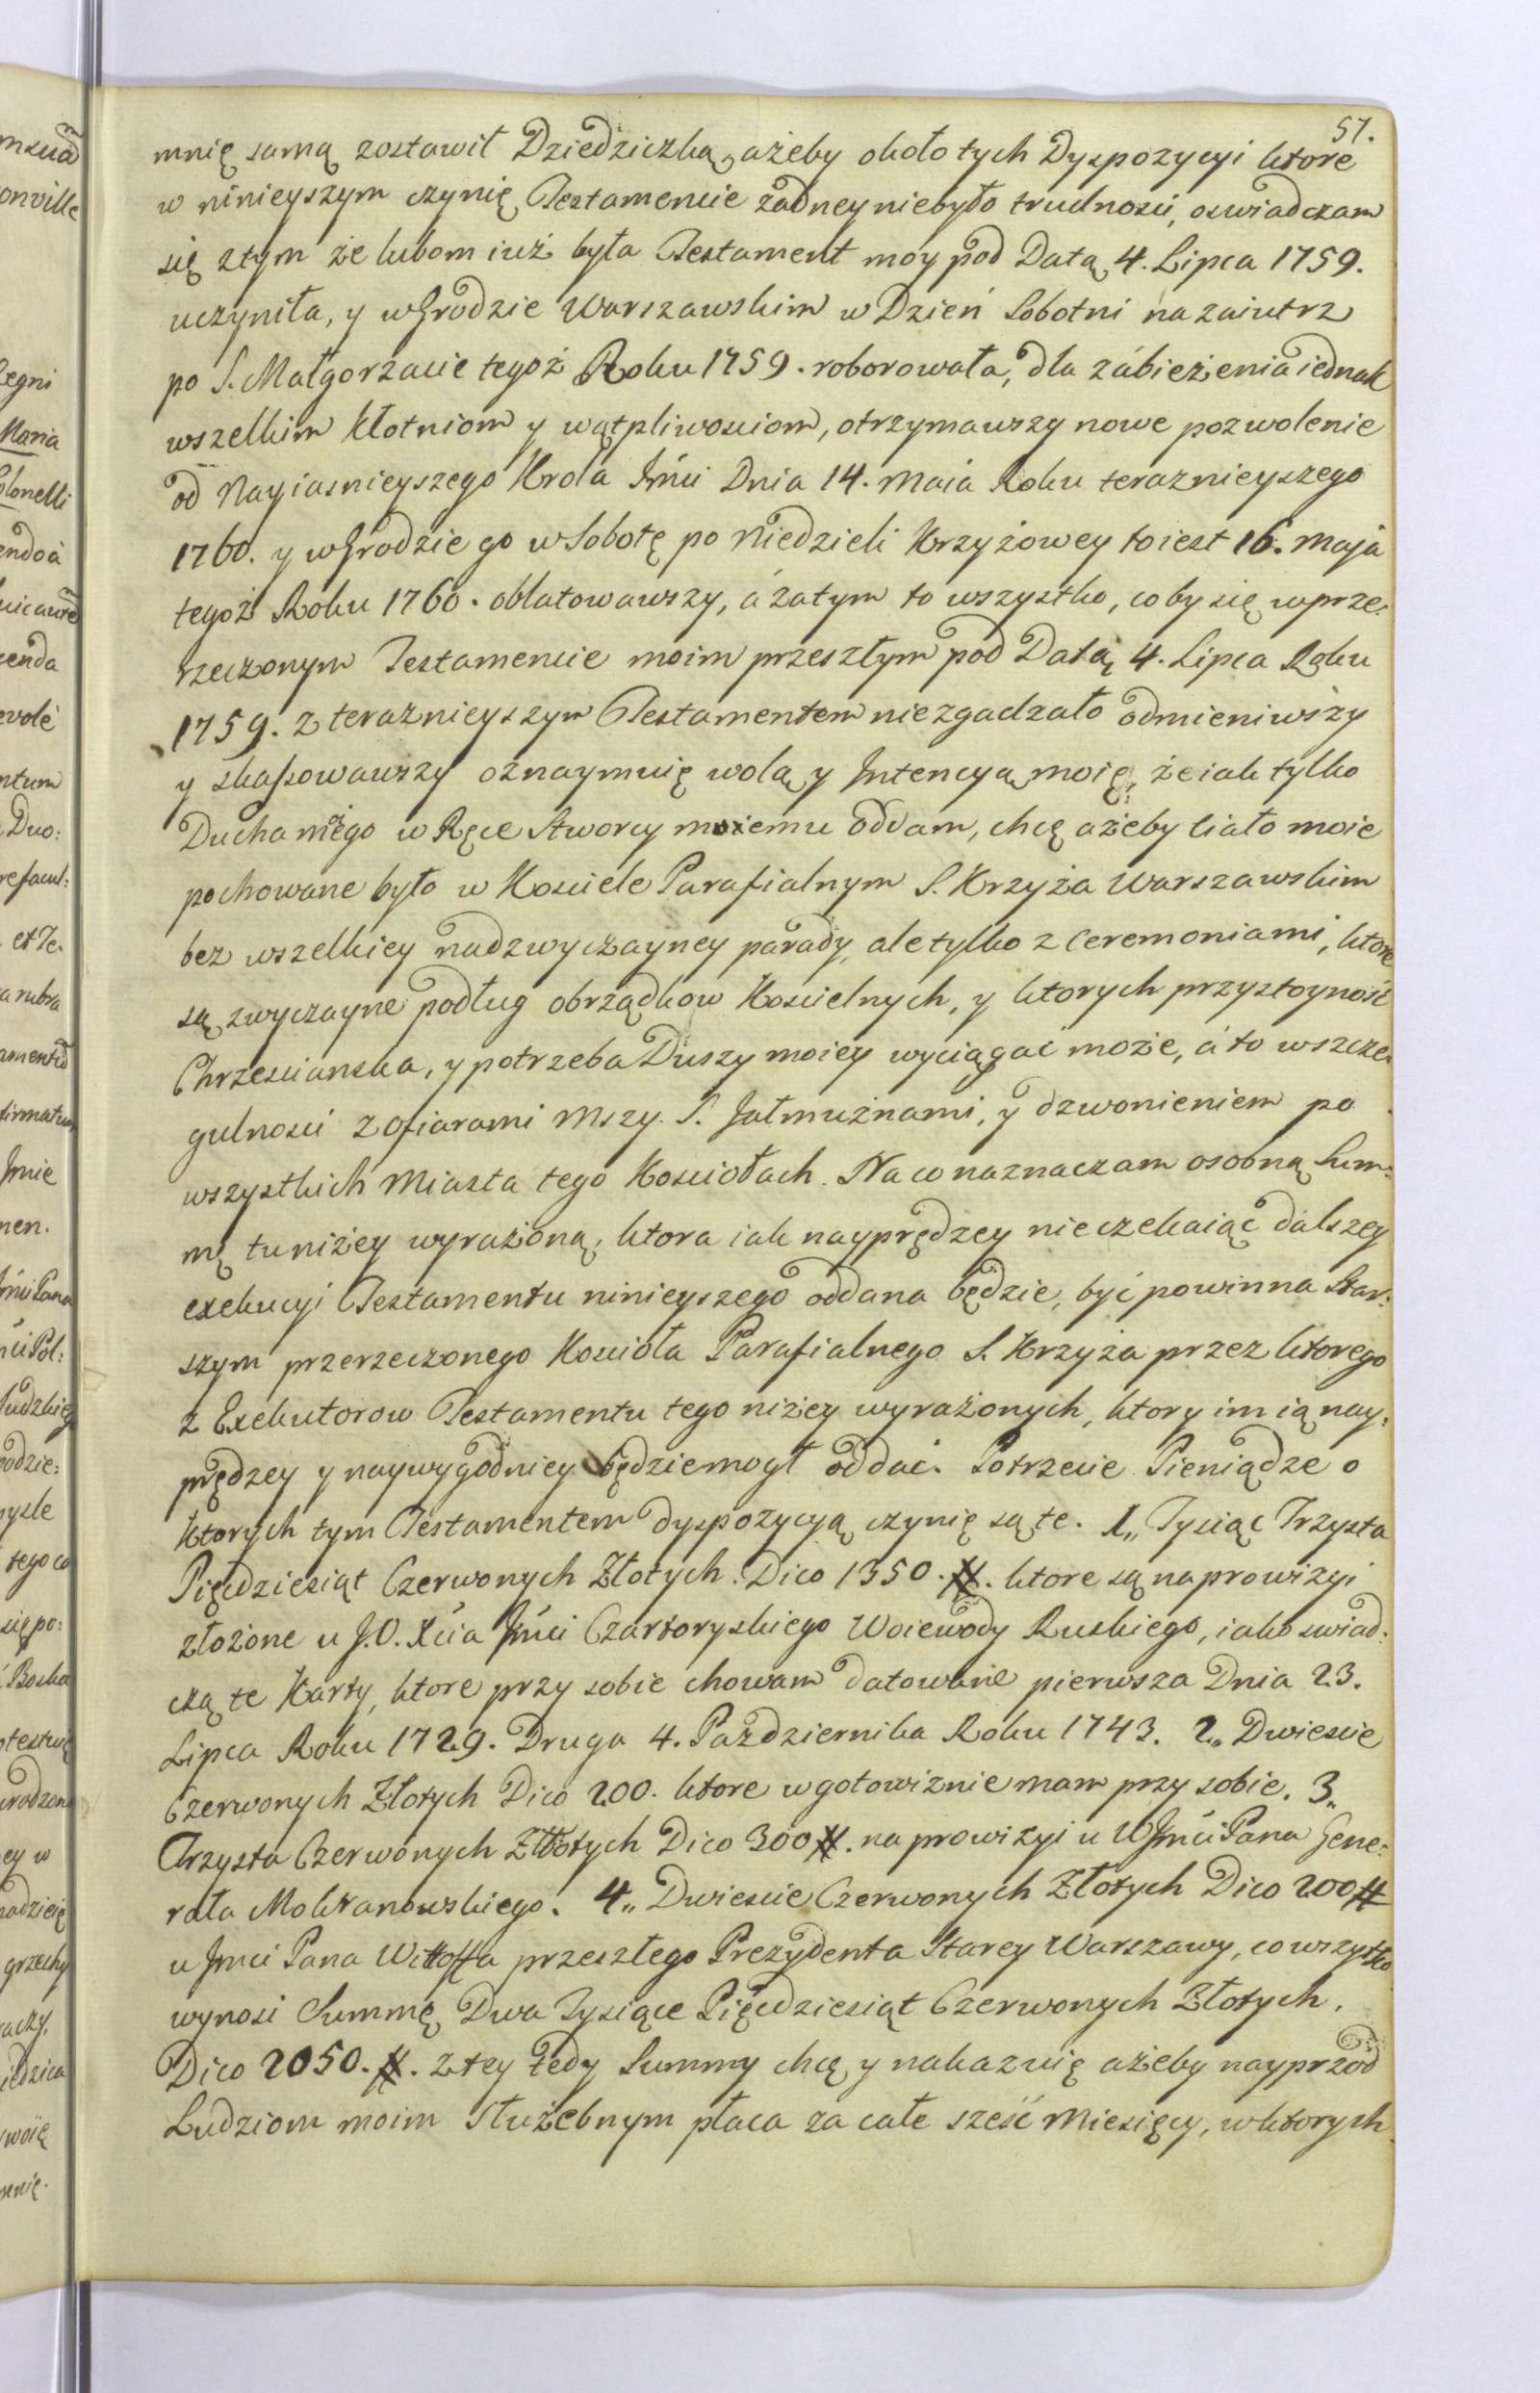 57.
mnię samą zostawił Dziedziczką, ażeby około tych Dyspozycyi ktore
w ninieyszym czynię Testamencie żadney niebyło trudnosci, oswiadczam
się ztym że lubom iuż była Testament moy pod Datą 4. Lipca 1759.
uczyniła, y w Grodzie Warszawskim w Dzień Sobotni nazaiutrz
po S. Małgorzacie tegoż Roku 1759. roborowała, dla zábieżenia iednak
wszelkim kłotniom y wątpliwosciom, otrzymawszy nowe pozwolenie
od Nayiasnieyszego Krola Jmci Dnia 14. Maia Roku teraznieyszego
1760. y w Grodzie go w Sobotę po Niedzieli Krzyżowey to iest 16. Maja
tegoż Roku 1760. oblatowawszy, á zatym to wszystko, coby się wprze:
rzeczonym Testamencie moim przeszłym pod Datą 4. Lipca Roku
1759. z teraznieyszym Testamentem niezgadzało odmieniwszy
y skassowawszy oznaymuię wolą y Intencyą moię, że iak tylko
Ducha mego w Ręce Stworcy moiemu oddam, chcę ażeby ciało moie
pochowane było w Kosciele Parafialnym S. Krzyża Warszawskim
bez wszelkiey nadzwyczayney parady, ale tylko z Ceremoniami, ktore
są zwyczayne podług obrządkow Koscielnych, y ktorych przystoynosć
Chrzescianska, y potrzeba Duszy moiey wyciągać może, á to wszcze:
gulnosci z ofiarami Mszy S. Jałmużnami, y dzwonieniem po
wszystkich Miasta tego Kosciołach. Na co naznaczam osobną Sum:
mę tu niżey wyrażoną, ktora iak nayprędzey nieczekaiąc dalszey
exekucyi Testamentu ninieyszego oddana będzie, być powinna Star:
szym przerzeczonego Kościoła Parafialnego S. Krzyża przez ktorego
z Exekutorow Testamentu tego niżey wyrażonych, ktory im ią nay:
prędzey y naywygodniey będzie mogł oddać. Potrzecie Pieniądze o
ktorych tym Testamentem dyspozycyą czynię są te. 1,, Tysiąc Trzysta
Pięćdziesiąt Czerwonych Złotych. Dico 1350. #. ktore są na prowizyi
złożone u J.O. Xcia Jmci Czartoryskiego Woiewody Ruskiego, iako swiad:
czą te Karty, ktore przy sobie chowam datowane pierwsza Dnia 23.
Lipca Roku 1729. Druga 4. Pazdziernika Roku 1743. 2,, Dwiescie
Czerwonych Złotych Dico 200. ktore w gotowiznie mam przy sobie. 3,,
Trzysta Czerwonych Złłotych Dico 300 #. na prowizyi u WJmci Pana Gene:
rała Mokranowskiego. 4,, Dwiescie Czerwonych Złotych Dico 200 #
u Jmci Pana Wittoffa przeszłego Prezydenta Starey Warszawy, co wszystko
wynosi Summę Dwa Tysiące Pięćdziesiąt Czerwonych Złotych.
Dico 2050. #. z tey tedy Summy chcę y nakazuię ażeby nayprzod
Ludziom moim Służebnym płaca za całe szesć Miesięcy, w ktorych